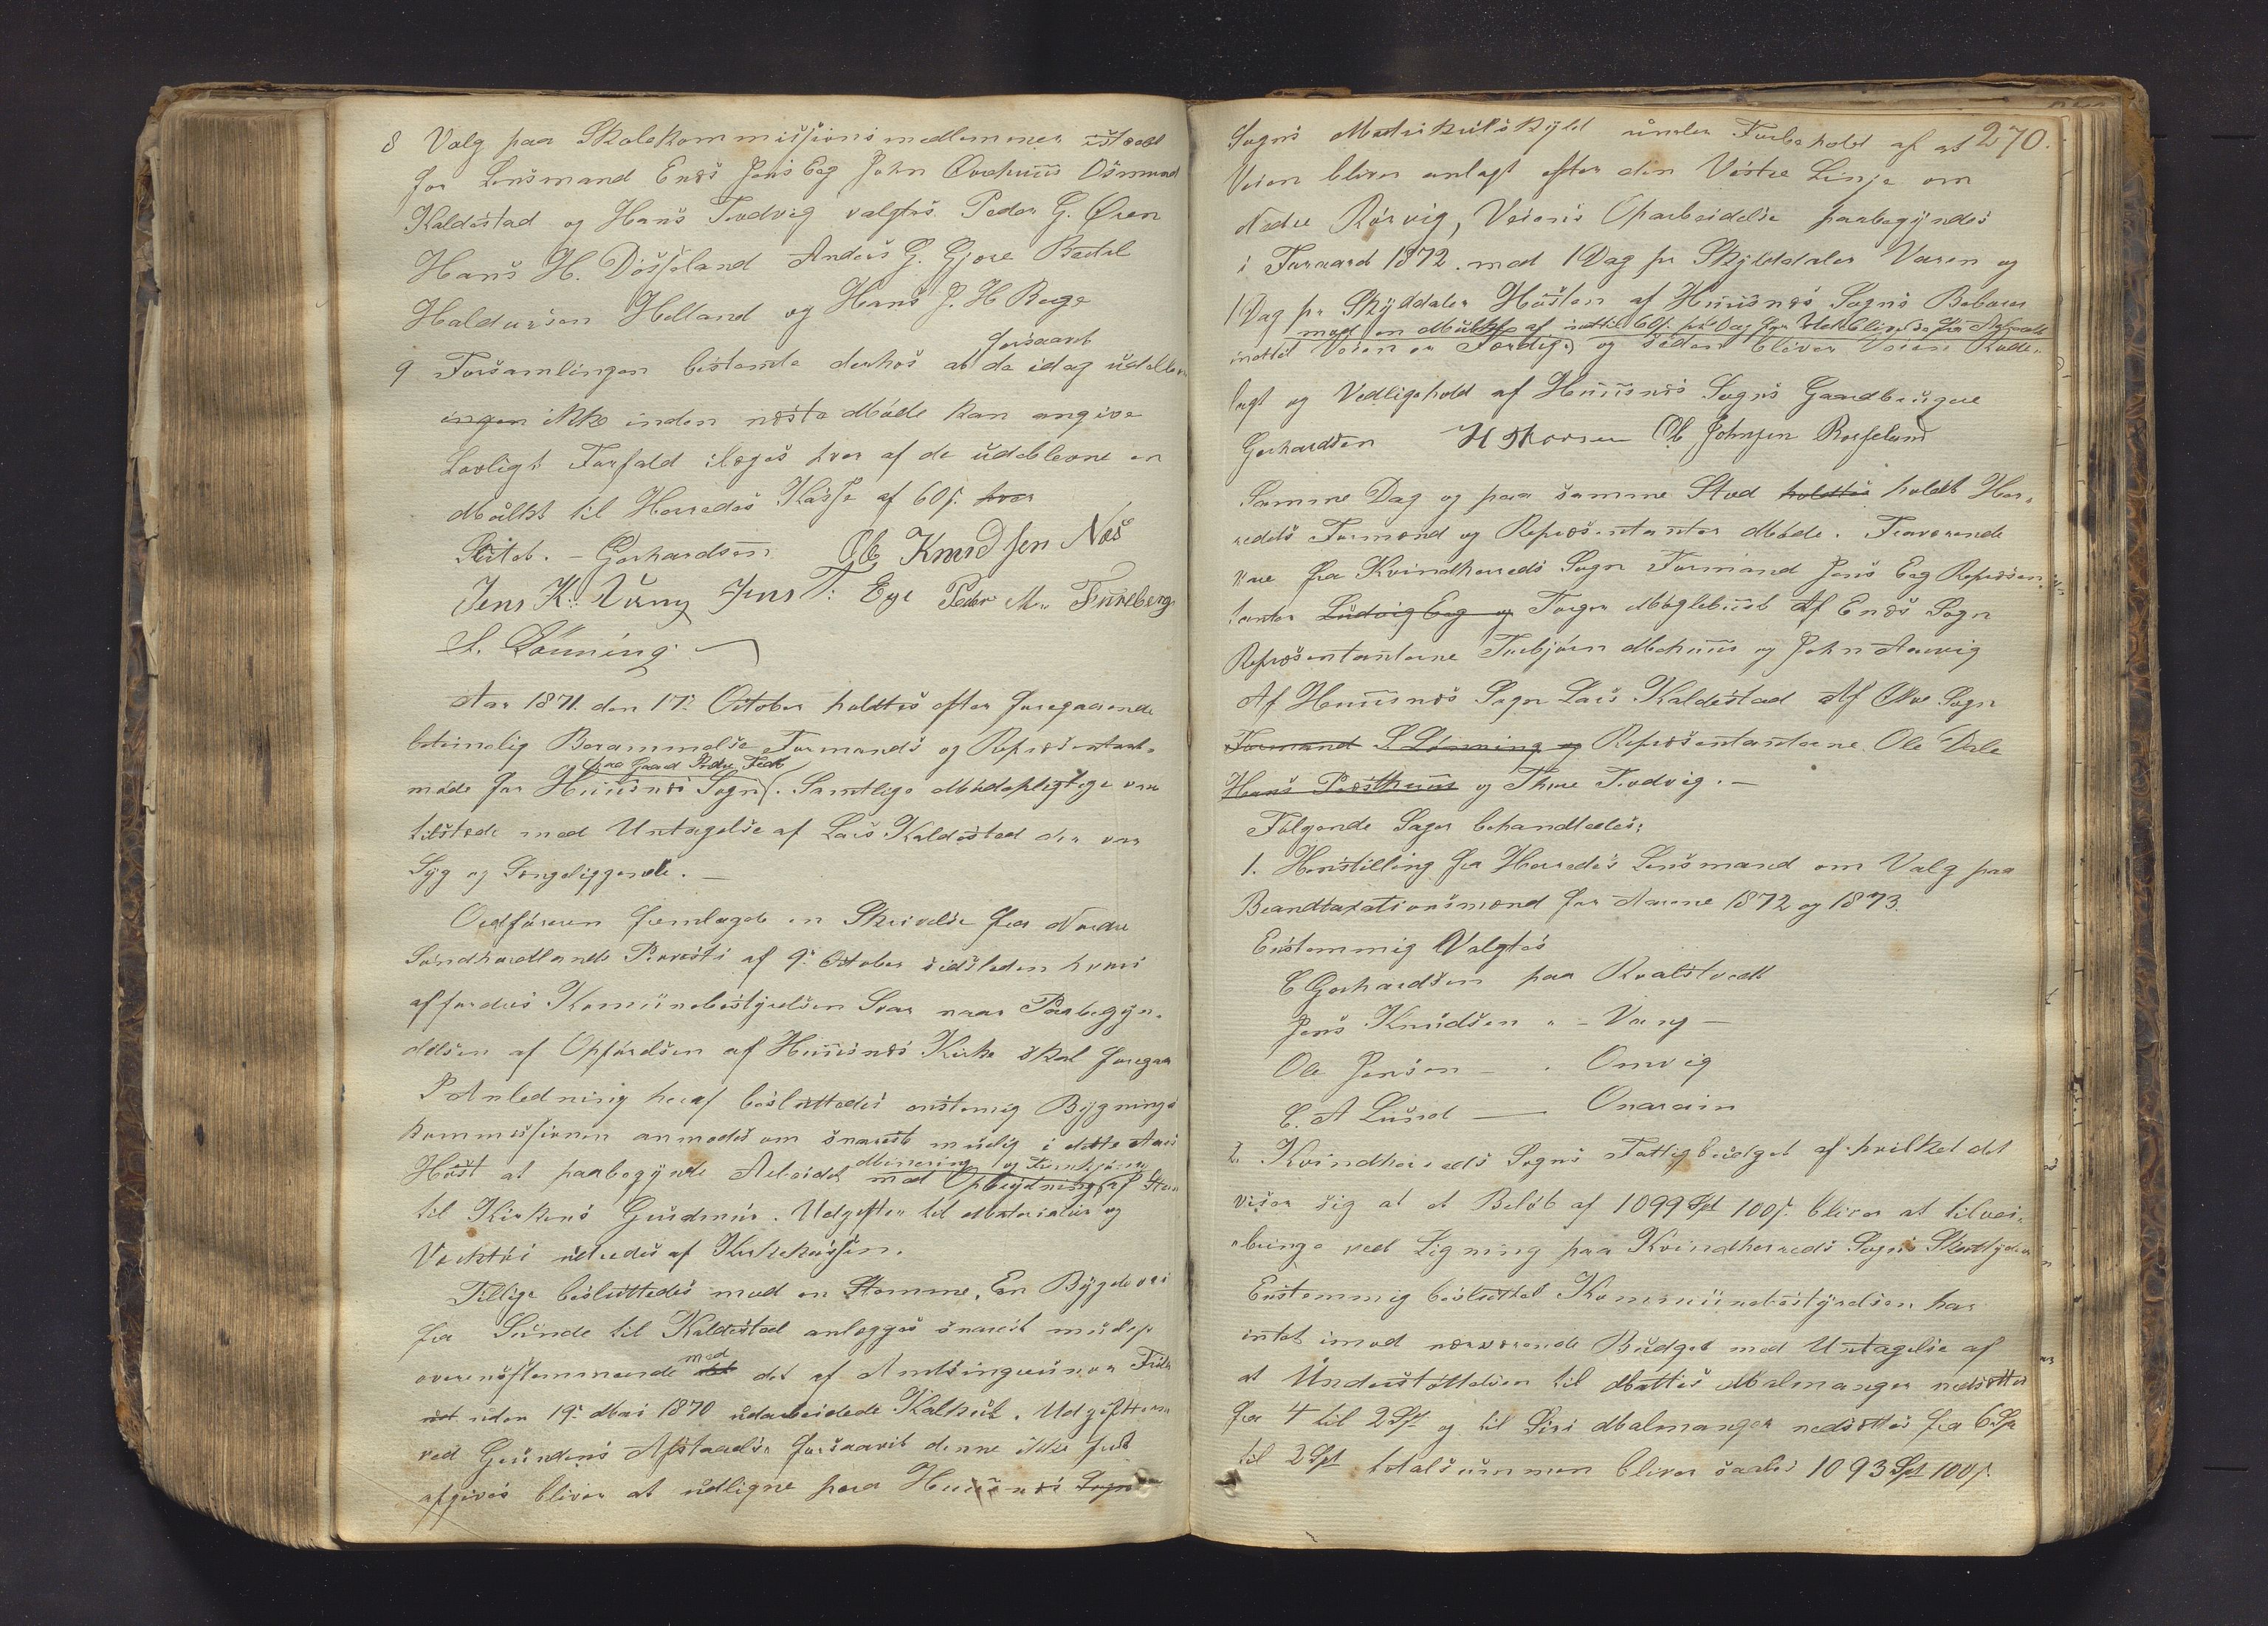 8 Valg paa Skolekommissionsmedlemmer istædt
for Lensmand Enæs Jens Eeg John Ovrehuus Osmund
Kaldestad og Hans Tvedvig valgtes. Peder G. Øren
Hans H. Døssland Anders G. Gjøre Botel
Haldorsen Helland og Hans J. H Berge
forsaavt
9 Forsamlingen bestemte derhos at de idag udeblevne
ingen ikke inden næste Møde kan angive
Lovligt Forfald ilæges hver af de udeblevne en
Mulkt til Herredes Kasse af 60 s. hver
Sluttet. - Gerhardsen Ole Knudsen Næs
Jens K. Vang Jens T. Eye Peder M. Fureberg
S. Lönning
Aar 1871. den 17. October holdtes efter foregaaende
betimelig Berammelse Formands og Repræsentant-
paa Gaard Nedre Fedt
møde for Huusnæs Sogn. Samtlige Mødepligtige var
tilstæde med Untagelse af Lars Kaldestad der var
Syg og Sengeliggende. —
Ordføreren fremlagde en Skrivelse fra Nordre
Søndhordlands Provsti af 9. October sidstleden hvori
affordres Kommünebestyrelsen Svar naar Paabegyn-
delsen af Opførelsen af Huusnæs Kirke skal foregaa
I Anledning heraf besluttedes enstemig Bygnings
kommissionen anmodes om snarest mulig i dette Aars
Høst at paabegynde Arbeidet med Opbrydning af Sten
Minering og Fremkjøring
til Kirkens Grundmur. Udgifter til Materialier og
Værktøi udredes af Kirkekassen.
Tillige besluttedes mod en Stemme, En Bygdevei
fra Sunde til Kaldestad anlægges snarest muligt
overensstemmende med det af Amtsingeniør
under 19. Mai 1870 udarbeidede Kalkul. Udgifterne
ved Grundens Afstaaelse forsaavit denne ikke frit
afgives bliver at udligne paa Huusnæs Sogn
270.
Sogns Matrikulskyld under Forbehold af at
Veien bliver anlagt efter den Vestre Linje om
Nedre Rørvig, Veiens Oparbeidelse paabegyndes
i Foraaret 1872. med 1 Dag pr Skylddaler Vaaren og
1 Dag pr Skylddaler Høsten af Huusnæs Sogns Beboer
mod en Mulkt af indtil 60 s. pr Dag for Udeblivelse fra Arbeidet
indtil Veien er Færdig og siden bliver Veien Rode-
lagt og Vedligehold af Huusnæs Sogns Gaardbrugere
Gerhardsen H Thorsen Ole Johnsen Rosseland
Samme Dag og paa samme Sted holdtes holdt Her-
redets Formænd og Repræsentanter Møde. Fraværende
var fra Kvindherreds Sogn Formand Jens Eeg Repræsen-
tanter Ludvig Eeg og Torger Møglebust Af Enæs Sogn
Repræsentanterne Torbjørn Mehuus og John Arvig
Af Huusnæs Sogn Lars Kaldestad Af Ølve Sogn
Formand S Lønning og Repræsentanterne Ole Dale
Hans Præsthuus og Thore Tvedvig. —
Følgende Sager behandledes:
1. Henstilling fra Herredes Lensmand om Valg paa
Brandtaxationsmænd for Aarene 1872 og 1873.
Enstemmig Valgtes
C Gerhardsen paa Kvalstvedt
Jens Knudsen " - Vang —
Ole Jensen — " Omvig
C. A Lund —
2. Kvindherreds Sogns Fattigbudget af hvilket det
viser sig at et Beløb af 1099 Spd 100 s. bliver at tilvei-
bringe ved Ligning paa Kvindherreds Sogns Skatydere
Enstemmig besluttet Kommünebestyrelsen har
intet imod nærværende Budget med Untagelse af
at Understøttelsen til Mattis Malmanger nedsættes
fra 4 til 2 Spd og til Siri Malmanger nedsættes fra 6 Spd
til 2 Spd totalsummen bliver saaledes 1093 Spd 100 s.